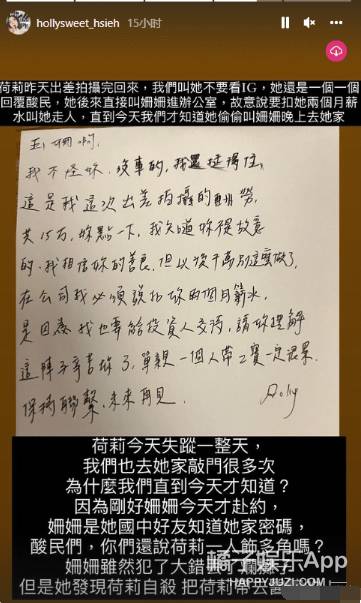 hollysweet_hsieh 15小时
荷莉昨天出差拍攝完回來，我們叫她不要看IG，她還是一個一個
回覆酸民，她後來直接叫姍姍進辦公室，故意說要扣她兩個月薪
水叫她走人，直到今天我們才知道她偷偷叫姍姍晚上去她家
姍啊，
我不怪妳，沒事的，我還挺得住，
這是我這次出差拍攝的酬勞，
共15万，妳點一下，我知道妳
的，我相信妳的善良，但以後千萬別這麼做了，
在公司我必須說扣妳2個月薪水，
是因為我也要給投資人交待，請妳理解
這陣子辛苦妳了，單親一個人帶2寶一定很累
保持聯繫，未來再見。
荷莉今天失蹤一整天，
我們也去她家敲門很多次
為什麼我們直到今天才知道？
因為剛好姍姍今天才赴約，
姍姍是她國中好友知道她家密碼，
酸民們，你們還說荷莉一人飾多角嗎？
姍姍雖然犯了大錯
但是她發現荷莉自殺 把荷莉帶去
橘子娱乐App
HAPPYJUZI.COM